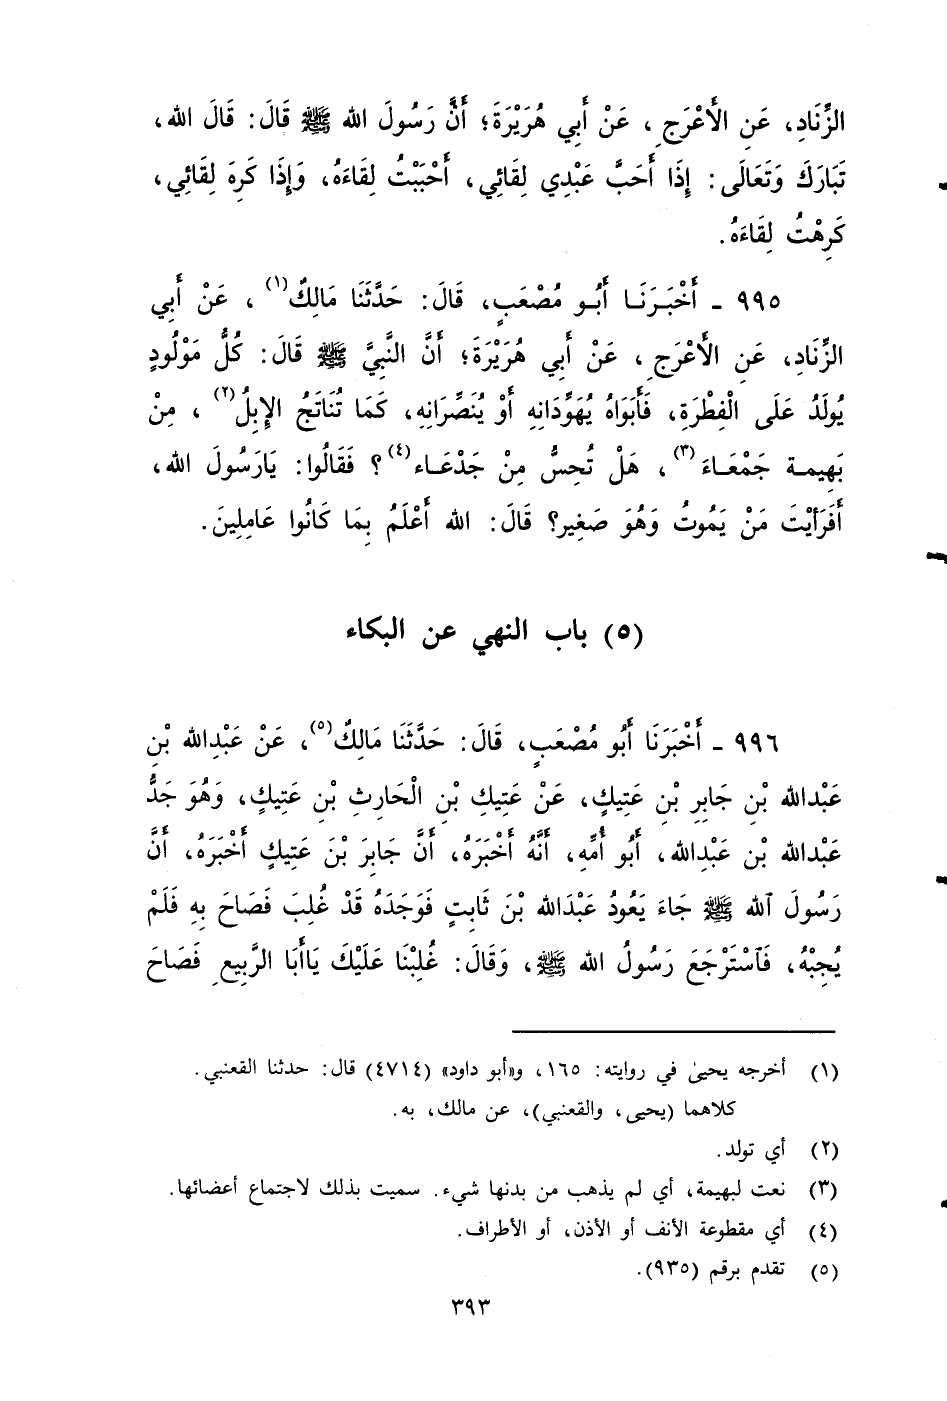 الزِّنَادِ، عَنِ الأَعْرَجِ، عَنْ أَبِي هُرَيْرَةَ؛ أَنَّ رَسُولَ الله ﷺ قَالَ: قَالَ الله،
تَبَارَكَ وَتَعَالَى: إِذَا أَحَبَّ عَبْدِي لِقَائِي، أَحْبَبْتُ لِقَاءَهُ، وَإِذَا كَرِهَ لِقَائِي،
كَرِهْتُ لِقَاءَهُ.
٩٩٥ ـ أَخْبَرَنَا أَبُو مُصْعَبٍ، قَالَ: حَدَّثَنَا مَالِكٌ(١)، عَنْ أَبِي
الزِّنَادِ، عَنِ الأَعْرَجِ، عَنْ أَبِي هُرَيْرَةَ؛ أَنَّ النَّبِيَّ ﷺ قَالَ: كُلُّ مَوْلُودٍ
يُولَدُ عَلَى الْفِطْرَةِ، فَأَبَوَاهُ يُهَوِّدَانِهِ أَوْ يُنَصِّرَانِهِ، كَمَا تُنَاتَجُ الإِبِلُ(٢)، مِنْ
بَهِيمة جَمْعَاءَ(٣)، هَلْ تُحِسُّ مِنْ جَدْعَاء(٤)؟ فَقَالُوا: يَارَسُولَ الله،
أَفَرَأَيْتَ مَنْ يَمُوتُ وَهُوَ صَغِير؟ قَالَ: الله أَعْلَمُ بِمَا كَانُوا عَامِلِينَ.
(٥) باب النهي عن البكاء
٩٩٦ ـ أَخْبَرَنَا أَبُو مُصْعَبٍ، قَالَ: حَدَّثَنَا مَالِكٌ(٥)، عَنْ عَبْدِالله بْنِ
عَبْدالله بْنِ جَابِرِ بْنِ عَتِيكٍ، عَنْ عَتِيكِ بْنِ الْحَارِثِ بْنِ عَتِيكٍ، وَهُوَ جَدُّ
عَبْدالله بْنِ عَبْدِالله، أَبُو أُمِّهِ، أَنَّهُ أَخْبَرَهُ، أَنَّ جَابِرَ بْنَ عَتِيكٍ أَخْبَرَهُ، أَنَّ
رَسُولَ ٱلله ﷺ جَاءَ يَعُودُ عَبْدَالله بْنَ ثَابِتٍ فَوَجَدَهُ قَدْ غُلِبَ فَصَاحَ بِهِ فَلَمْ
يُجِبْهُ، فَٱسْتَرْجَعَ رَسُولُ الله ﷺ، وَقَالَ: غُلِبْنَا عَلَيْكَ يَاأَبَا الرَّبِيعِ فَصَاحَ
(١) أخرجه يحيىٰ في روايته: ١٦٥، و«أبو داود» (٤٧١٤) قال: حدثنا القعنبي.
كلاهما (يحيى، والقعنبي)، عن مالك، به.
(٢) أي تولد.
(٣) نعت لبهيمة، أي لم يذهب من بدنها شيء. سميت بذلك لاجتماع أعضائها.
(٤) أي مقطوعة الأنف أو الأذن، أو الأطراف.
(٥) تقدم برقم (٩٣٥).
٣٩٣